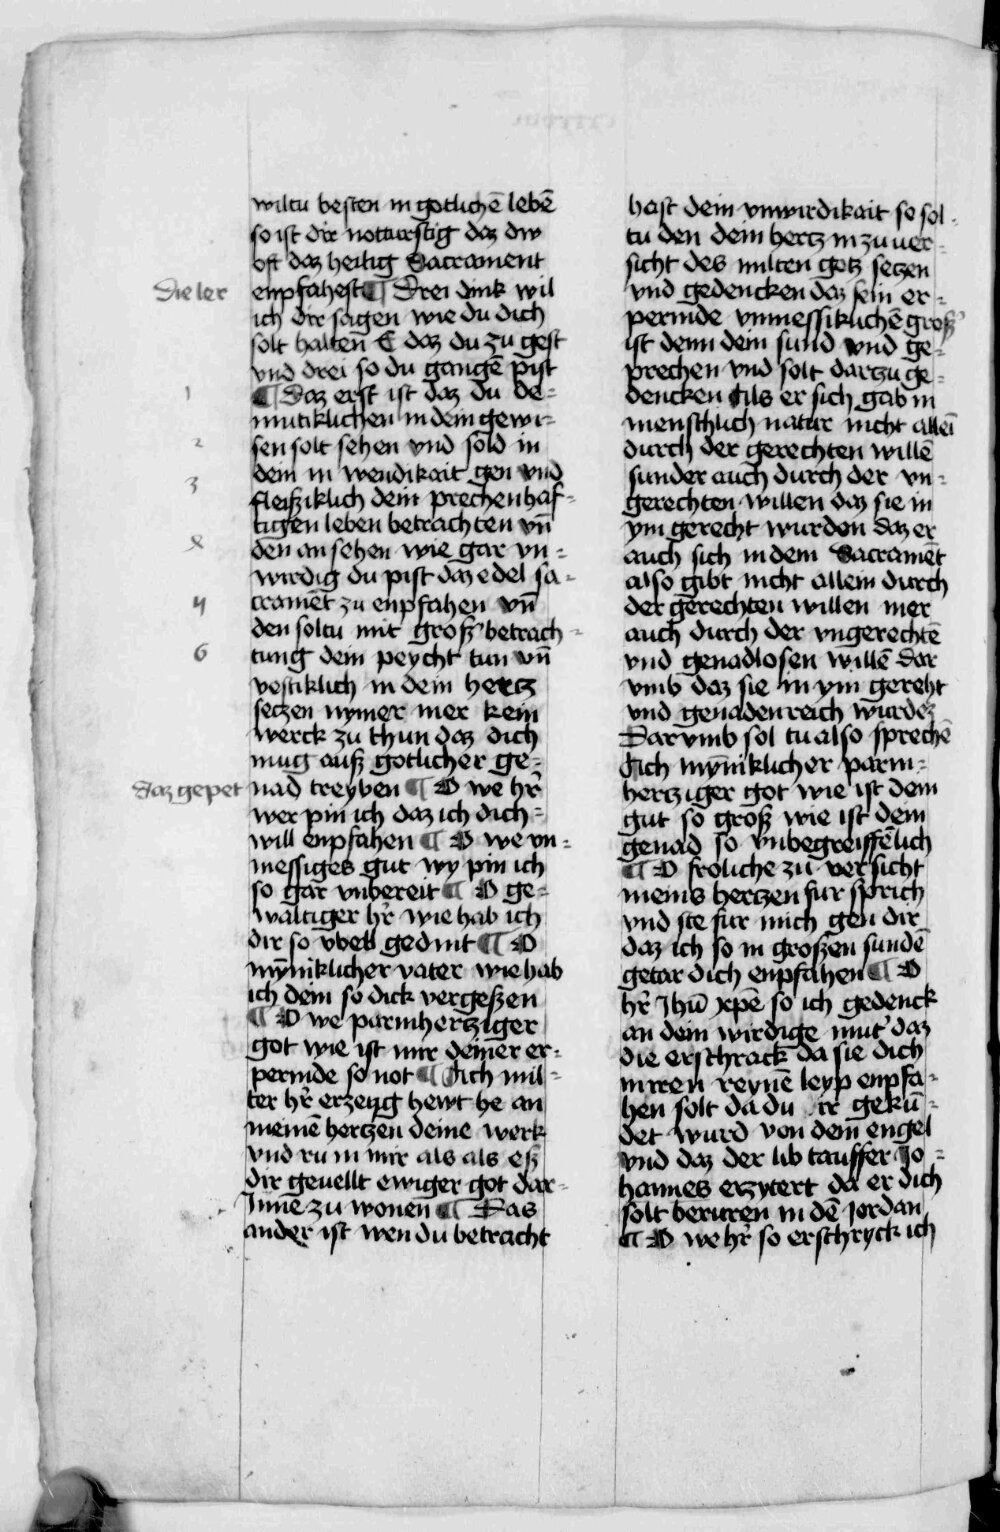 wiltu besten in gotlichē lebē
so ist dir noturftig daz dw
oft daz heilig Sacrament
Die ler
enpfahest ¶ Drei dink wil
ich dir sagen wie du dich
solt halten E daz du zu gest
vnd drei so du gangē pist
1
¶ Daz erst ist daz du de⸗
mutiklichen in dein gewi⸗
2
sen solt sehen vnd sold in
dein in wendikait gen vnd
3
fleißiklich dein prechenhaf⸗
tigen leben betrachten vn̄
4
den an sehen wie gar vn⸗
wirdig du pist daz edel sa⸗
5
crament zu enpfahen vn̄
den soltu mit groß' betrach⸗
6
tung dein peycht tun vn̄
vestiklich in dein hertz
seczen nymer mer kein
werck zu thun daz dich
mug auß gotlicher ge⸗
Daz gepet
nad treyben ¶ O we hr̄
wer pin ich daz ich dich⸗
will enpfahen ¶ O we vn⸗
messiges gut wy pin ich
so gar vnbereit ¶ O ge⸗
waltiger hr̄ wie hab ich
dir so vbel gedint ¶ O
mȳniklicher vater wie hab
ich dein so dick vergeßen
¶ O we parmhertziger
got wie ist mir deiner er⸗
permde so not ¶ Ach mil⸗
ter hr̄ erzeug hewt he an
meinē hertzen deine werk
vnd ru in mir als als eß
dir geuellt ewiger got dar⸗
Innē zu wonen ¶ Das
ander ist wen du betracht
hast dein vnwirdikait so sol⸗
tu den dein hertz in zu uer⸗
sicht des milten gotz seczen
vnd gedencken daz sein er⸗
permde vnmessiklichē groß'
ist denn dein sund vnd ge⸗
prechen vnd solt dartzu ge⸗
dencken Als er sich gab in
menschlich natur nicht allei
durch der gerechten willē
sunder auch durch der vn⸗
gerechten willen daz sie in
ym gerecht wurden daz er
auch sich in dem Sacramēt
also gibt nicht allein durch
der gerechten willen mer
auch durch der vngerechtē
vnd genadlosen willē dar
vmb daz sie in ym gereht
vnd genadenreich wurdē
Darvmb sol tu also sprechē
Ach mȳniklicher parm⸗
hertziger got wie ist dein
gut so groß wie ist dein
genad so vnbegreiffēlich
¶ O froliche zu versicht
meins hertzen fur sprich
vnd ste fur mich gen dir
daz ich so in großen sundē
getar dich enpfahen ¶ O
hr̄ Jhū xpē so ich gedenck
an dein wirdige mut' daz
die erschrack da sie dich
in iren reynē leyp enpfa⸗
hen solt da du ir gekū⸗
det wurd von dem engel
vnd daz der lib tauffer Jo⸗
hannes erzytert da er dich
solt beruren in dē Jordan
¶ O we hr̄ so erschryck ich